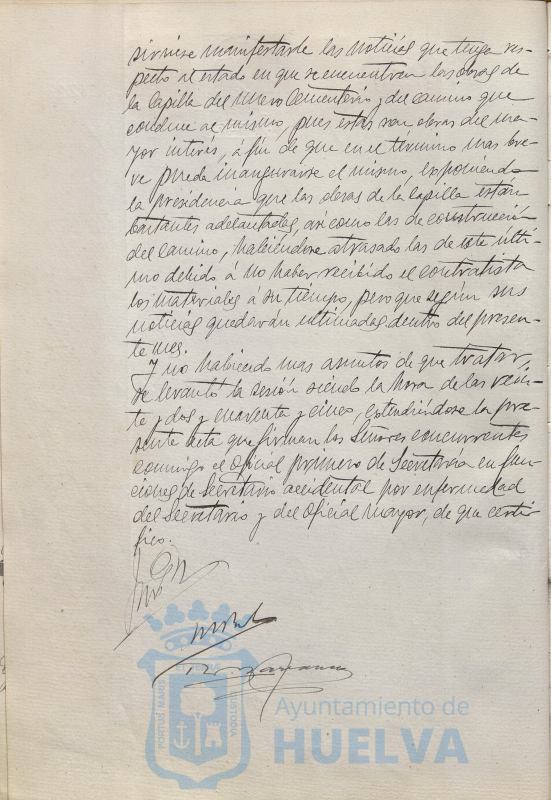 sirviese manifestarle las noticias que tenga res-
pecto al estado en que se encuentran las obras de
la Capilla del nuevo Cementerio y del camino que
conduce al mismo, pues estas son obras del ma-
yor interés, á fin de que en el término mas bre-
ve pueda inaugurarse el mismo, exponiendo
la presidencia que las obras de la Capilla están
bastantes adelantadas, asi como las de construccion
del camino, habiéndose atrasado las de este últi-
mo debido á no haber recibido el contratista
los materiales á su tiempo, pero que según sus
noticias quedarán ultimadas dentro del presen-
te mes.
Y no habiendo mas asuntos de que tratar,
se levantó la sesión siendo la hora de las vein-
te y dos y cuarenta y cinco, extendiéndose la pre-
sente acta que firman los Señores concurrentes
conmigo el Oficial primero de Secretaría en fun-
ciones de Secretario accidental por enfermedad
del Secretario y del Oficial Mayor, de que certi-
fico.
PORTUS MARIS ET TERRAE CUSTODIA
Ayuntamiento de
HUELVA